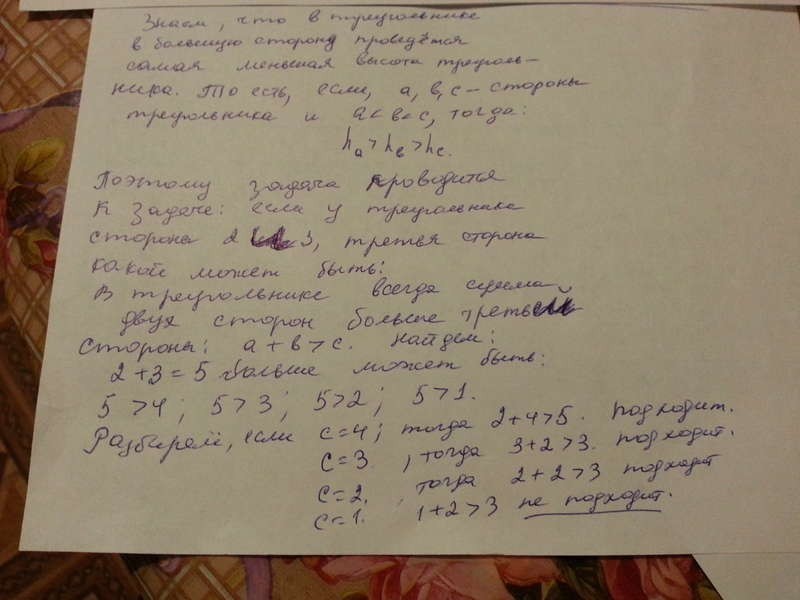 Знаем, что в треугольнике
в большую сторону проведётся
самая меньшая высота треуголь-
ника. То есть, если, a, b, c – стороны
треугольника и a < b < c, тогда:
ha > hb > hc.
Поэтому задача проводится
к задаче: если у треугольника
сторона 2 3, третья сторона
какой может быть:
В треугольнике всегда сумма
двух сторон больше третьей
стороны: a + b > c. Найдем:
2 + 3 = 5 больше может быть:
5 > 4 ; 5 > 3 ; 5 > 2 ; 5 > 1.
Разбираем, если c = 4; тогда 2+4>5. подходит.
c = 3 , тогда 3+2>3. подходит.
c = 2. , тогда 2+2>3 подходит
c = 1. 1+2>3 не подходит.